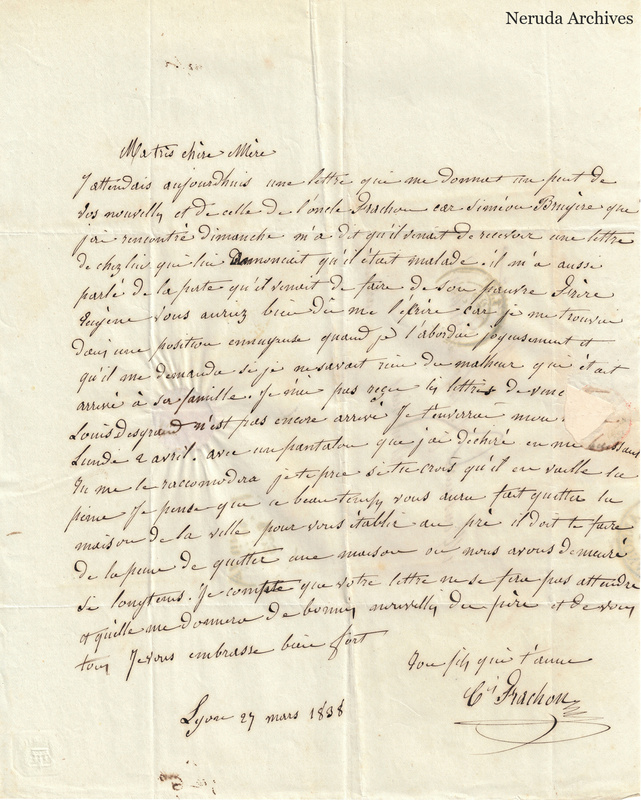 Neruda Archives
Ma très chère Mère
J'attendais aujourdhuis une lettre qui me donnat un peut de
vos nouvelly et de celle de l'oncle Frachon car Siméon Bruyère que
j'ai rencontré dimanche m'a dit qu'il venait de recevoir une lettre
de chez lui qui lui annoncait qu'il était malade. il m'a aussi
parlé de la perte qu'il venait de faire de son pauvre Frère
Eugène vous auriez bien du me l'écrire car je me trouvai
dans une position ennuyeuse quand je l'abordai joyeusement et
qu'il me demanda si je ne savait rien du malheur qui était
arrivé à sa famille. Je n'ai pas reçu les lettres de
Louis Desgrand n'est pas encore arrivé Je t'enverrai mon
Lundi 2 avril. avec un pantalon que j'ai déchiré en me
tu me le racomodera je te prie si tu crois qu'il en vaille la
peine Je pense que ce beau temps vous aura fait quitter la
maison de la ville pour vous établir au pré il doit te faire
de la peine de quitter une maison ou nous avons demeuré
si longtems. Je compte que votre lettre ne se fera pas attendre
et quelle me donnera de bonnes nouvelly du père et de vous
tous Je vous embrasse bien fort
Ton fils qui t'aime
Frachon
Lyon 27 mars 1838